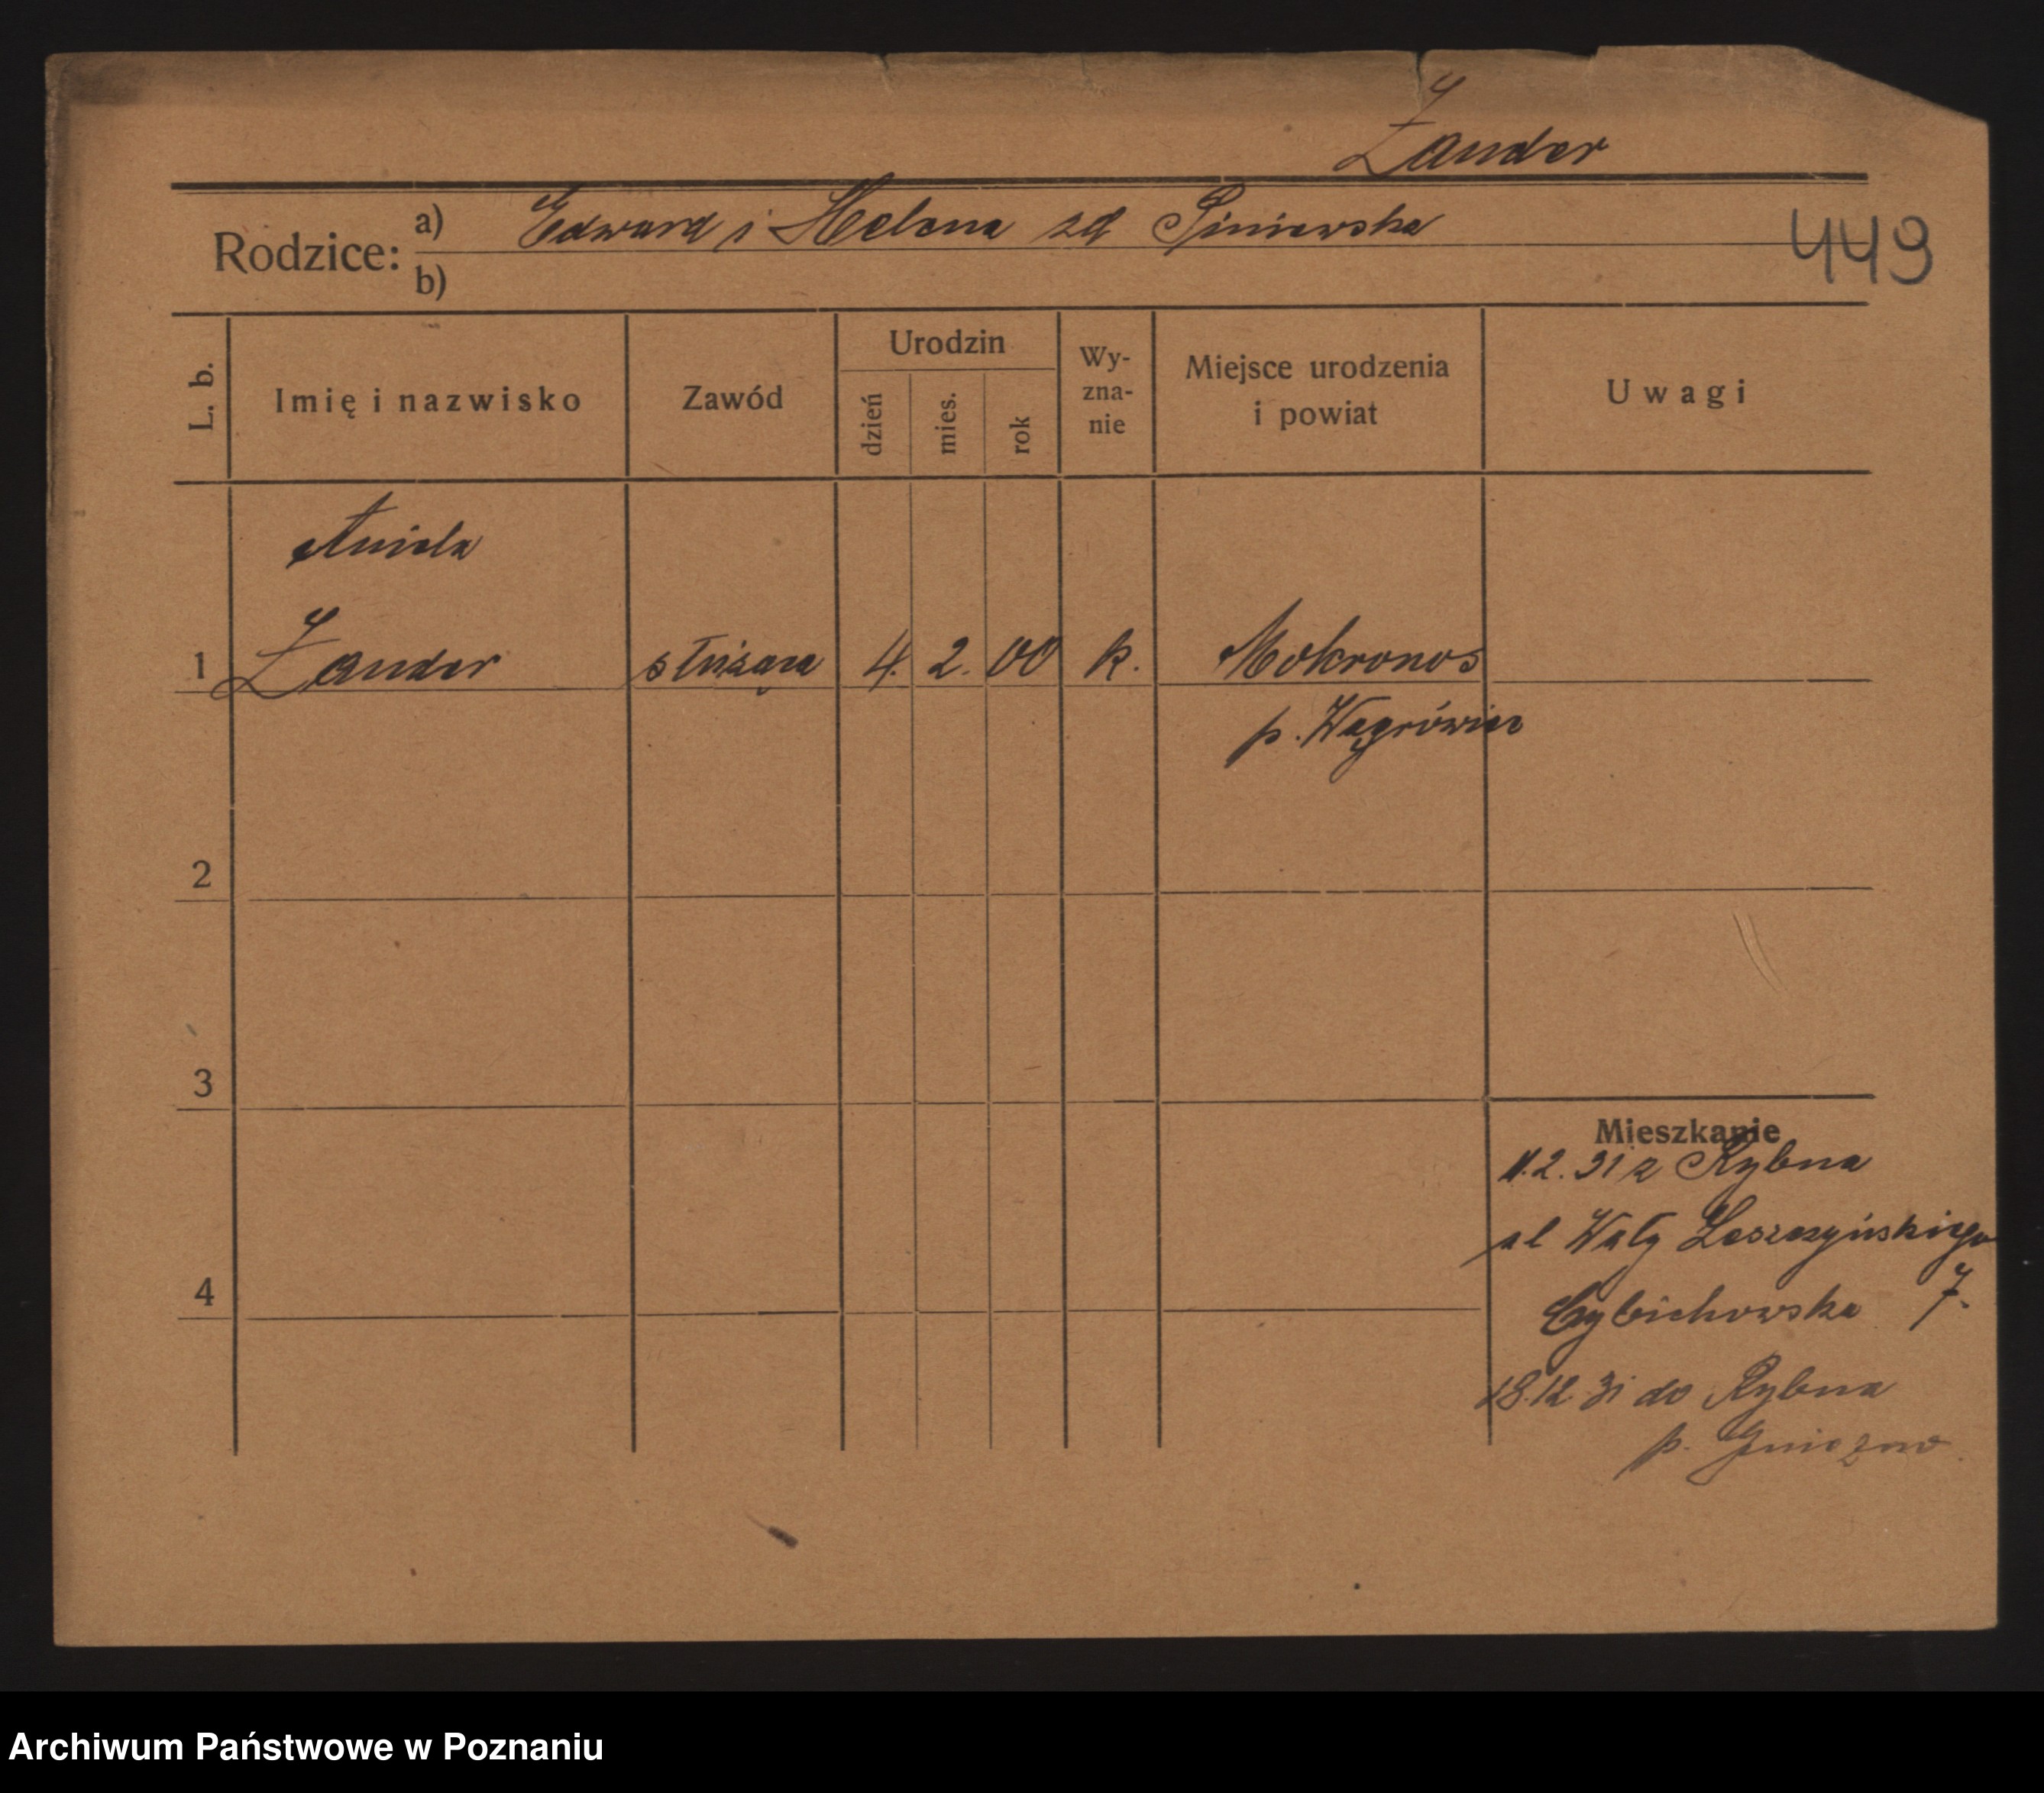 Zander
Rodzice: a) Edward i Helena zd Siniewska
b)
449
L. b. Imię i nazwisko Zawód Urodzin dzień mies. rok Wy-zna-nie Miejsce urodzenia i powiat Uwagi
Aniela
1 Zander służąca 4. 2. 00 k. Mokronos
p. Wągrówiec
2
3
4
Mieszkanie
2. 31 z Rybna
ul Wały Leszczyńskiego
7.
Cybichowska
18.12 31 do Rybna
p. Gniezno
Archiwum Państwowe w Poznaniu